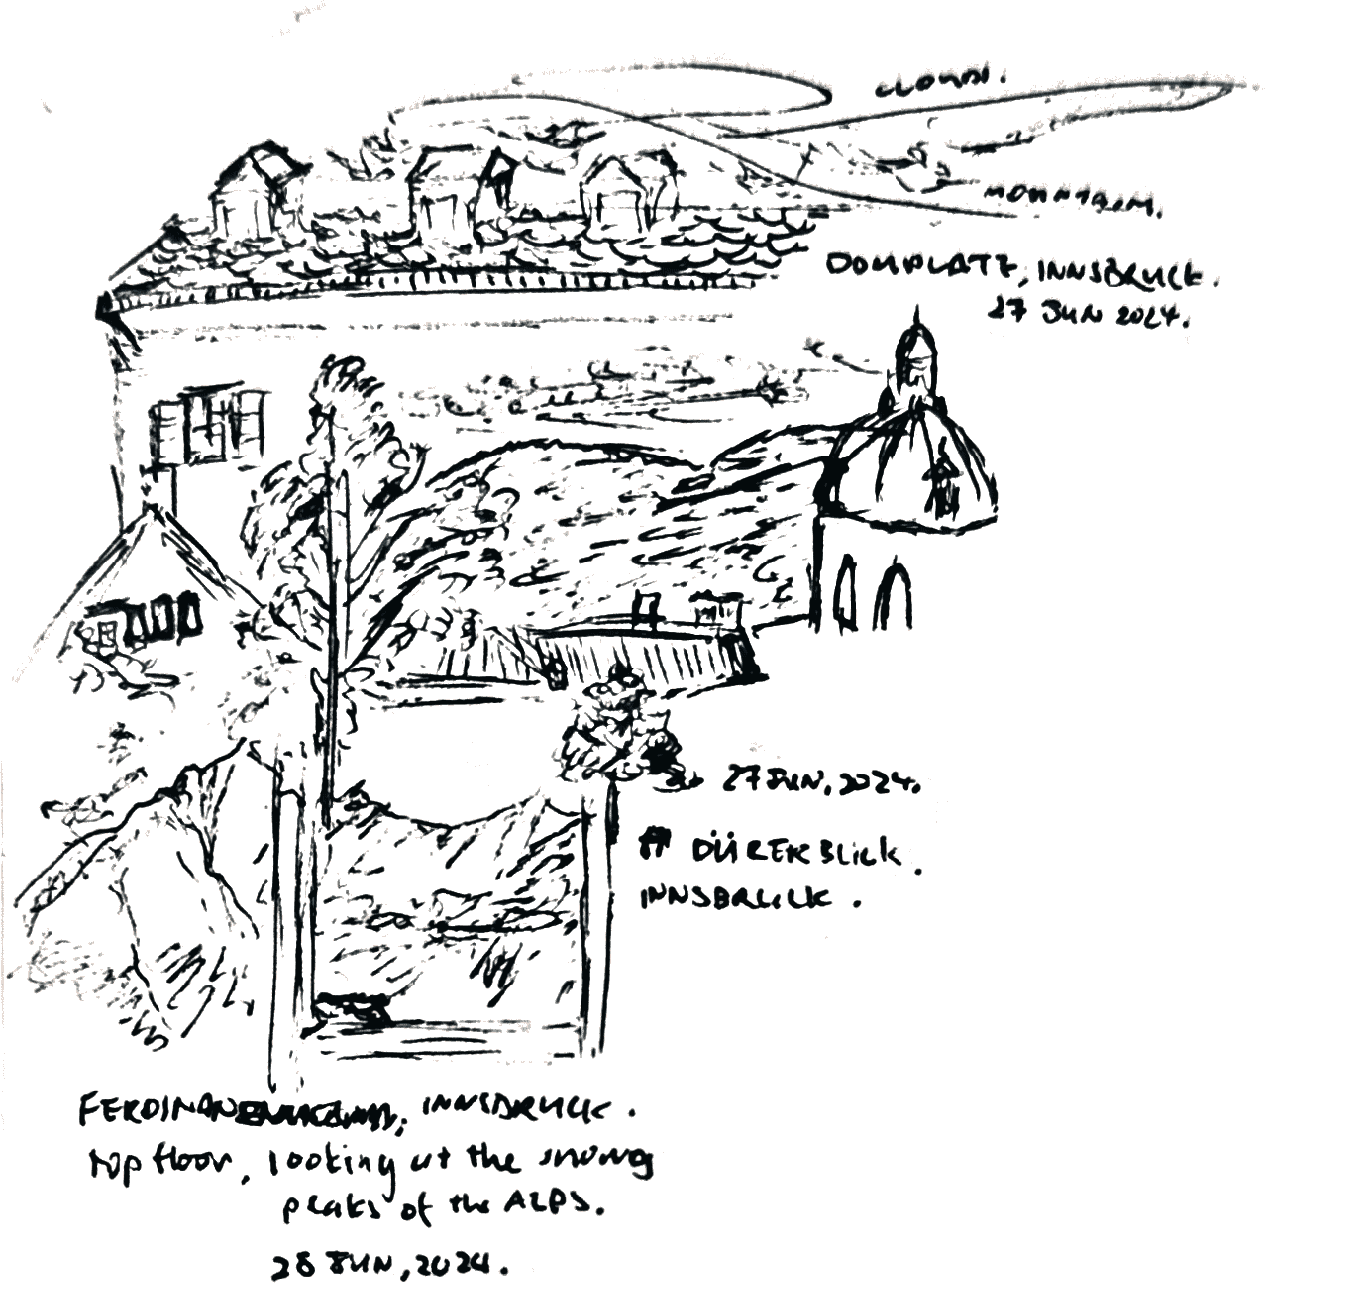 CLOUDS.
MOUNTAIN.
DOMPLATZ, INNSBRUCK.
27 JUN 2024.
27 JUN, 2024.
# DÜRERBLICK.
INNSBRUCK.
INNSBRUCK.
top floor, looking at the snowy
peaks of the ALPS.
28 JUN, 2024.